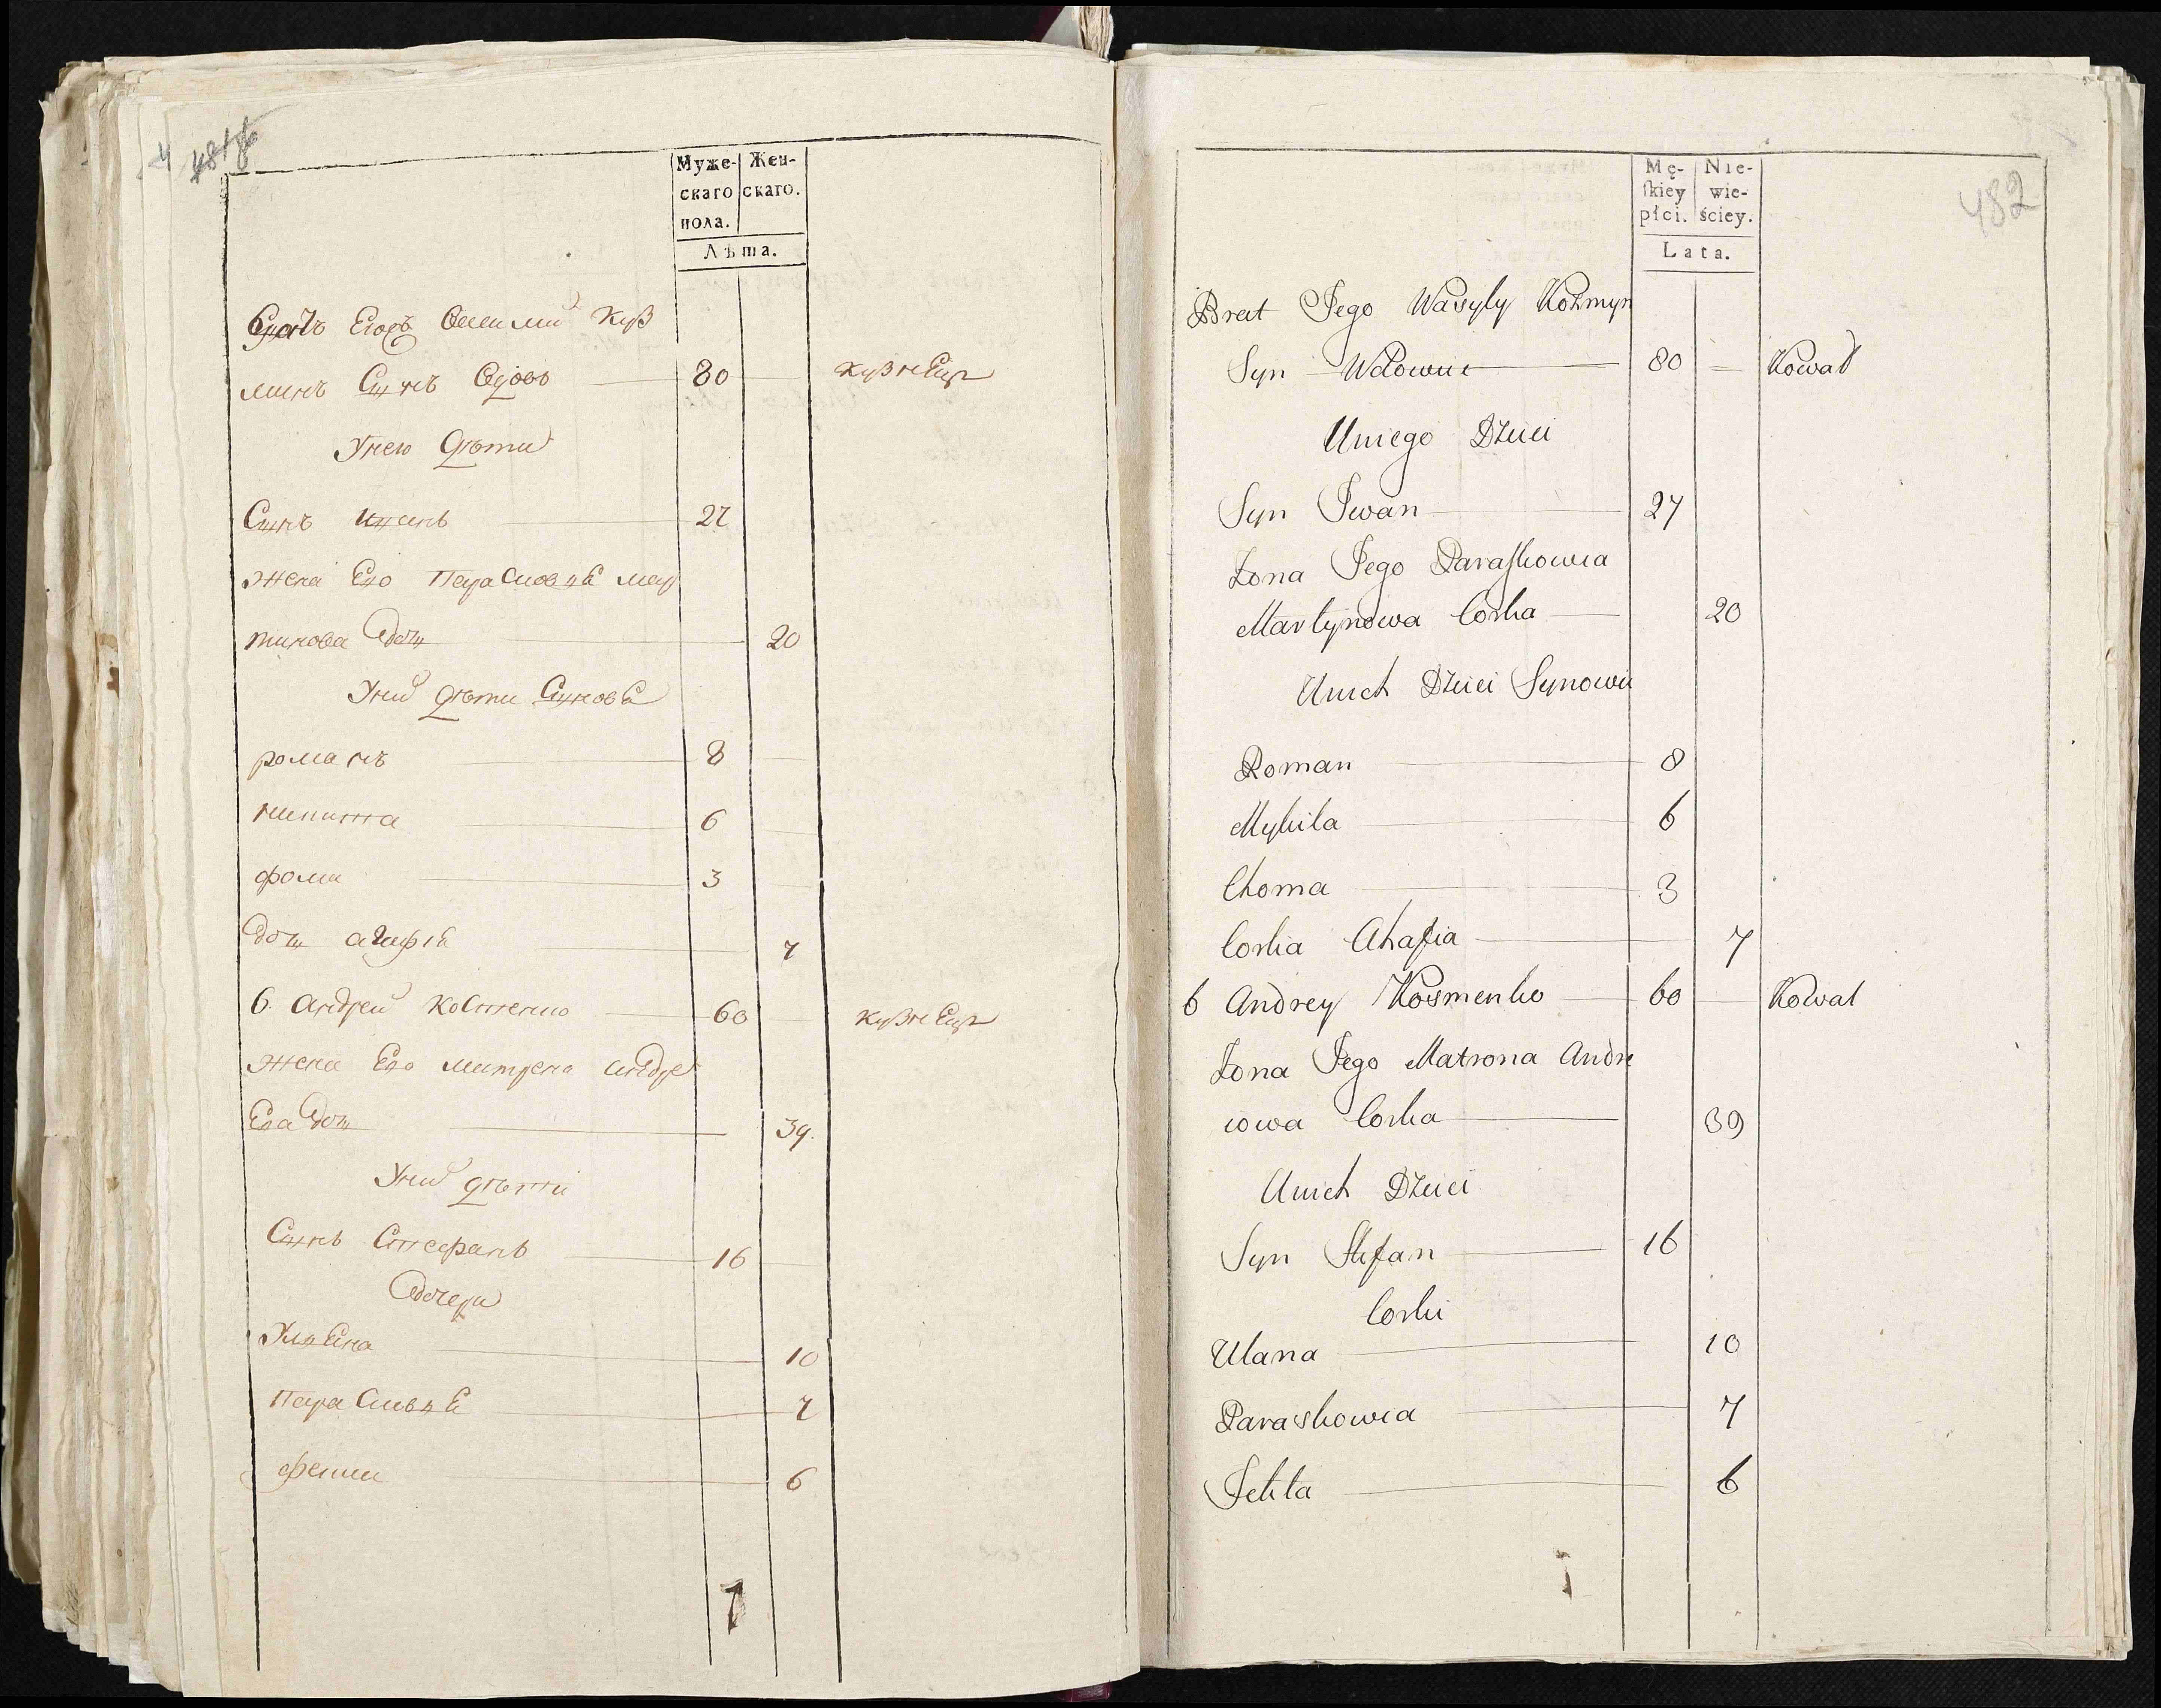 481 об
Муже- Жен-
скаго скаго.
пола.
Лѣта.
братъ Егоръ Василий Куз
минъ Сынъ вдовъ 80 кузнецъ
Унего дѣти
Сынъ иванъ 27
жена Его Парасковья мар
тинова дочь 20
Уних дѣти Сыновя
романъ 8
никита 6
фома 3
дочь агафія 7
6 андрей Косменко 60 кузнецъ
жена Его матрена андре
Ева дочь 39.
Уних дѣти
Сынъ Стефанъ 16
дочери
Ульяна 10
Парасковья 7
фекла 6
482
Mę- Nie-
ſkiey wie-
płci. ściey.
Lata.
Brat Jego Wasyly Kozmyn
Syn Wdowiec 80 Kowal
Uniego Dzieci
Syn Iwan 27
Zona Jego Paraskowia
Martynowa Corka 20
Unich Dzieci Synowie
Roman 8
Mykita 6
Choma 3
Corka Ahafia 7
6 Andrey Kosmenko 60 Kowal
Zona Jego Matrona Andre
iowa Corka 39
Unich Dzieci
Syn Stefan 16
Corki
Ulana 10
Paraskowia 7
Fekla 6